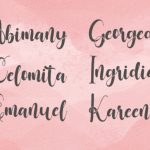 Abimany Georgea
Celomita Ingridia
Emanuel Kareen